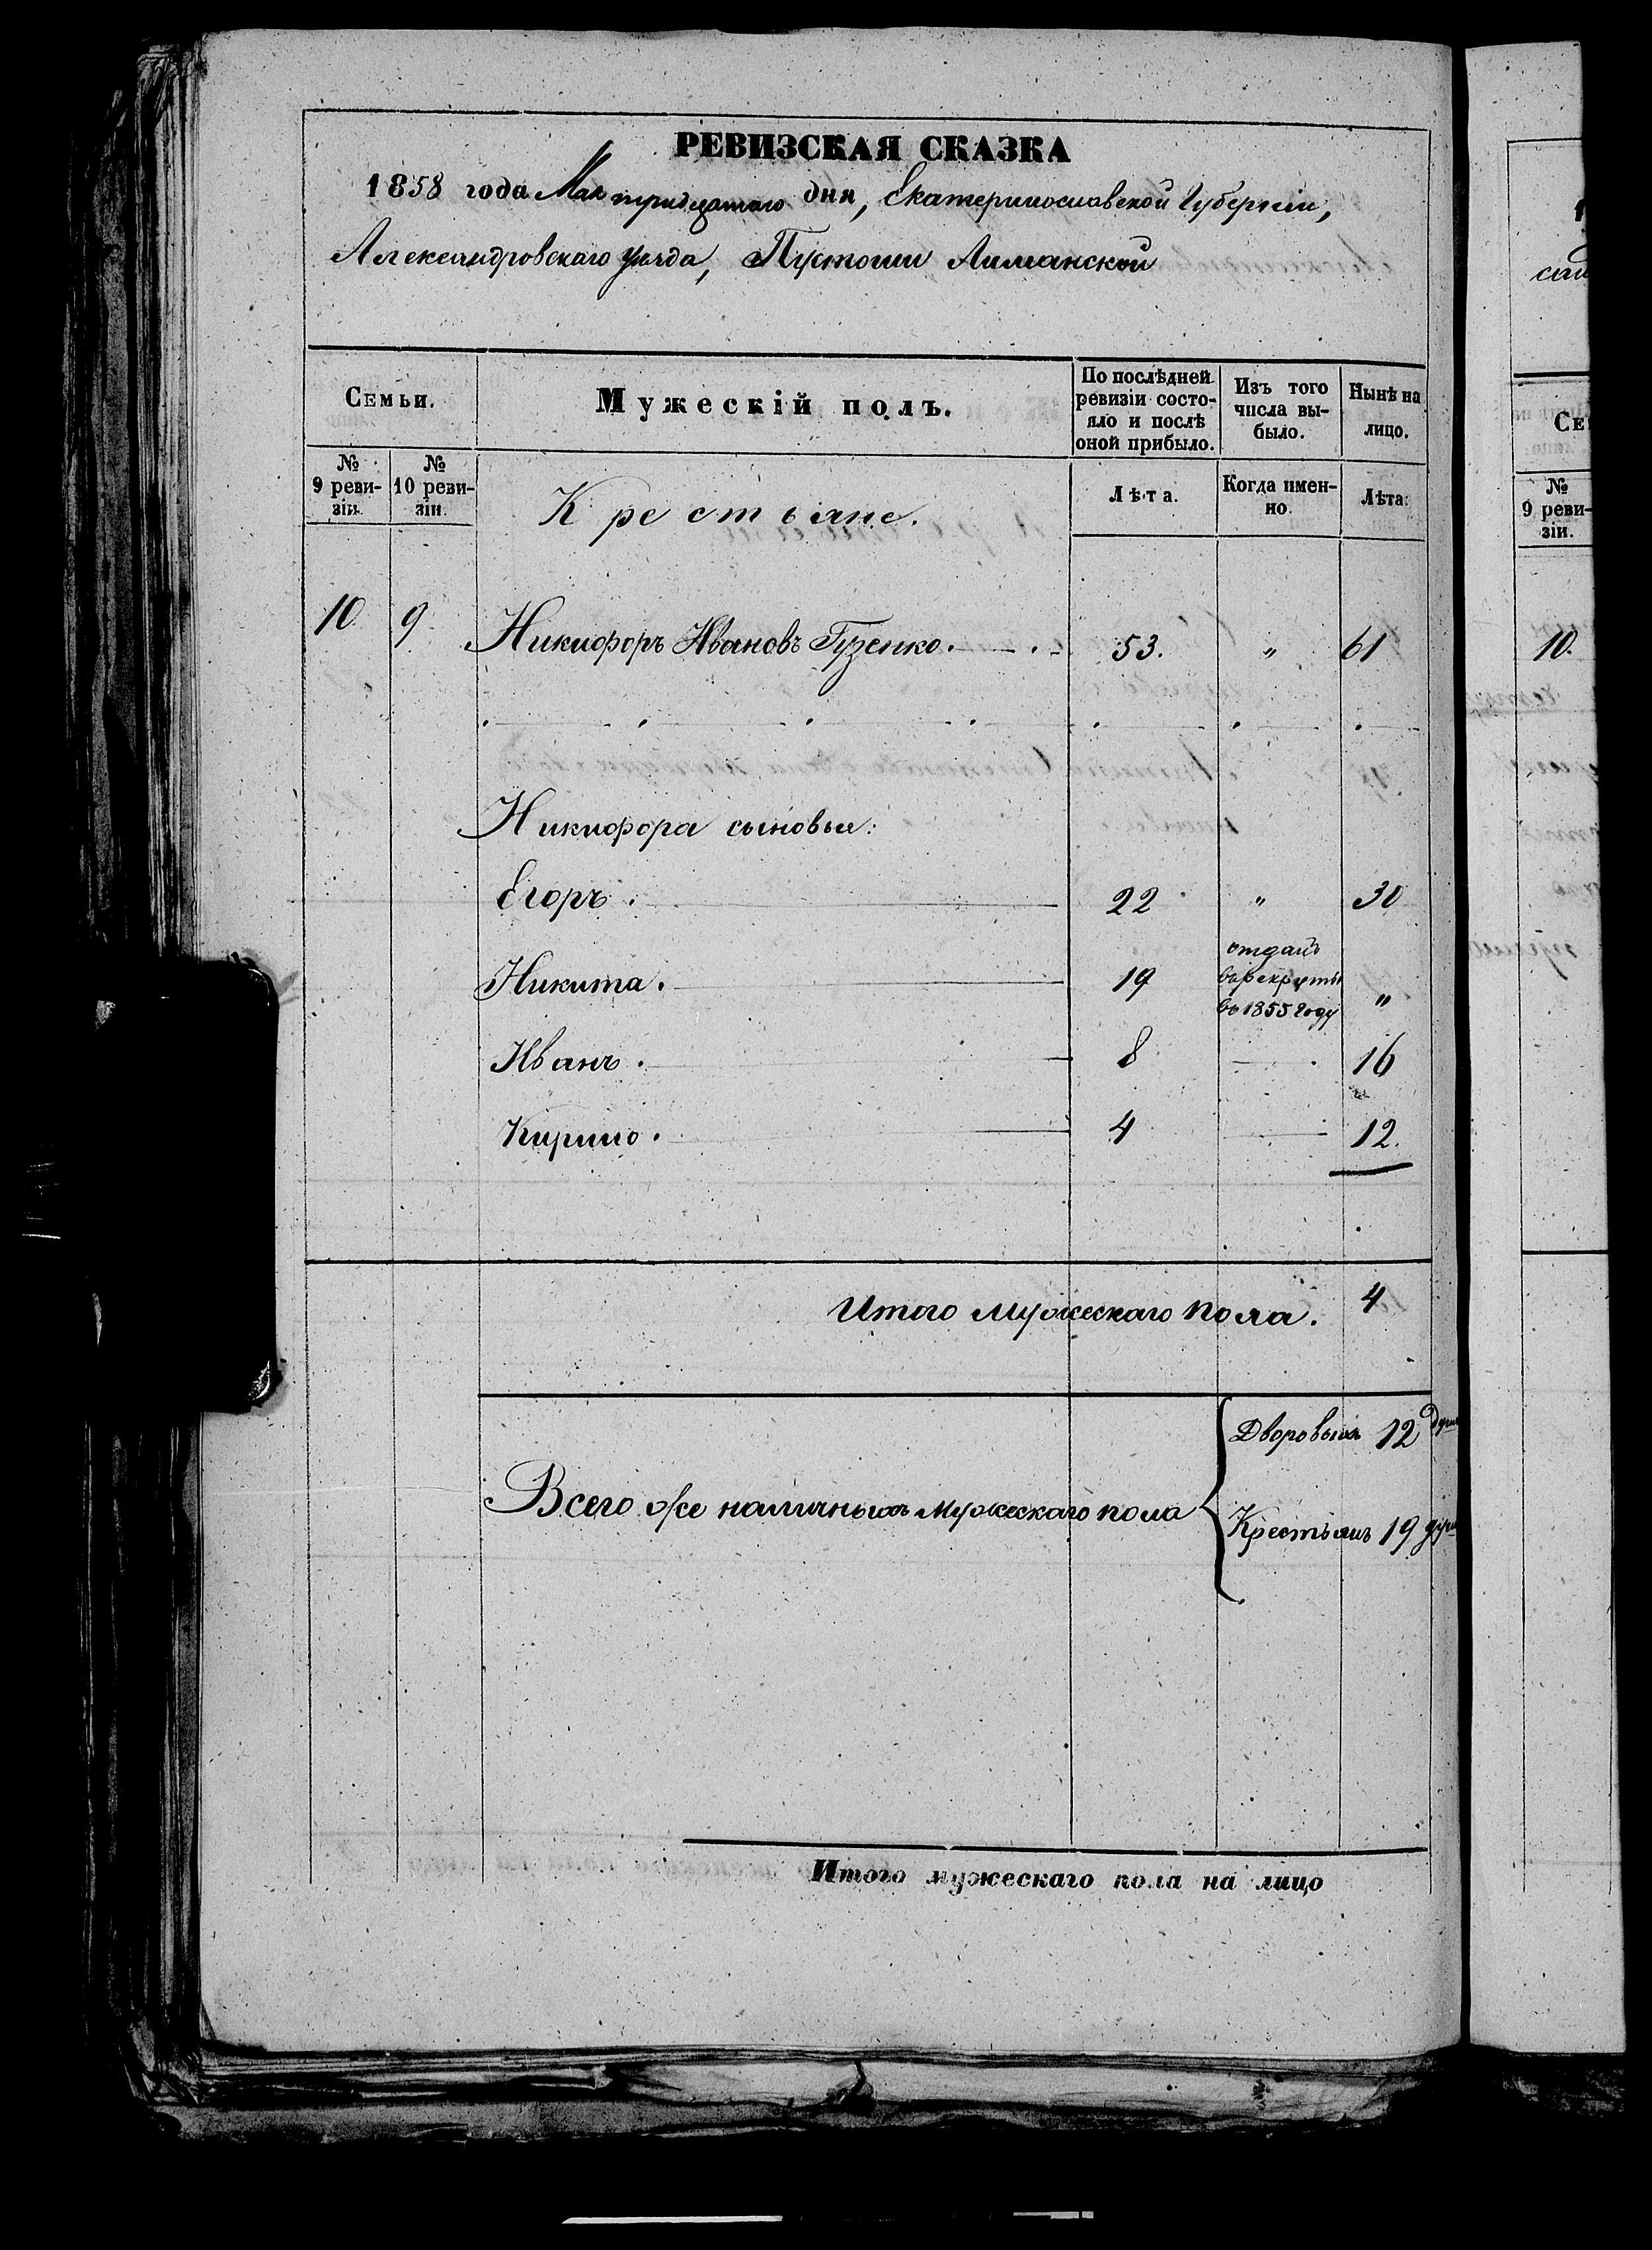 РЕВИЗСКАЯ СКАЗКА
1858 года Мая тридцатаго дня, Екатеринославской Губерніи,
Александровскаго уѣзда, Пустоши Лиманской
Семьи.
Мужескій полъ.
По послѣдней ревизіи состояло и послѣ оной прибыло.
Изъ того числа выбыло.
Нынѣ на лицо.
№ 9 ревизіи.
№ 10 ревизіи.
Крестьяне.
Лѣта.
Когда именно.
Лѣта.
10 9 Никифоръ Ивановъ Гузенко. 53. " 61
Никифора сыновья:
Егоръ. 22 " 30
Никита. 19 отданъ въ рекруты въ 1855 году "
Иванъ. 8 16
Кирило. 4 12.
Итого мужескаго пола. 4
Всего же наличныхъ мужескаго пола
Дворовыхъ 12 душъ
Крестьянъ 19 душъ
Итого мужескаго пола на лицо
Се
№
9 реви-
зіи.
10.